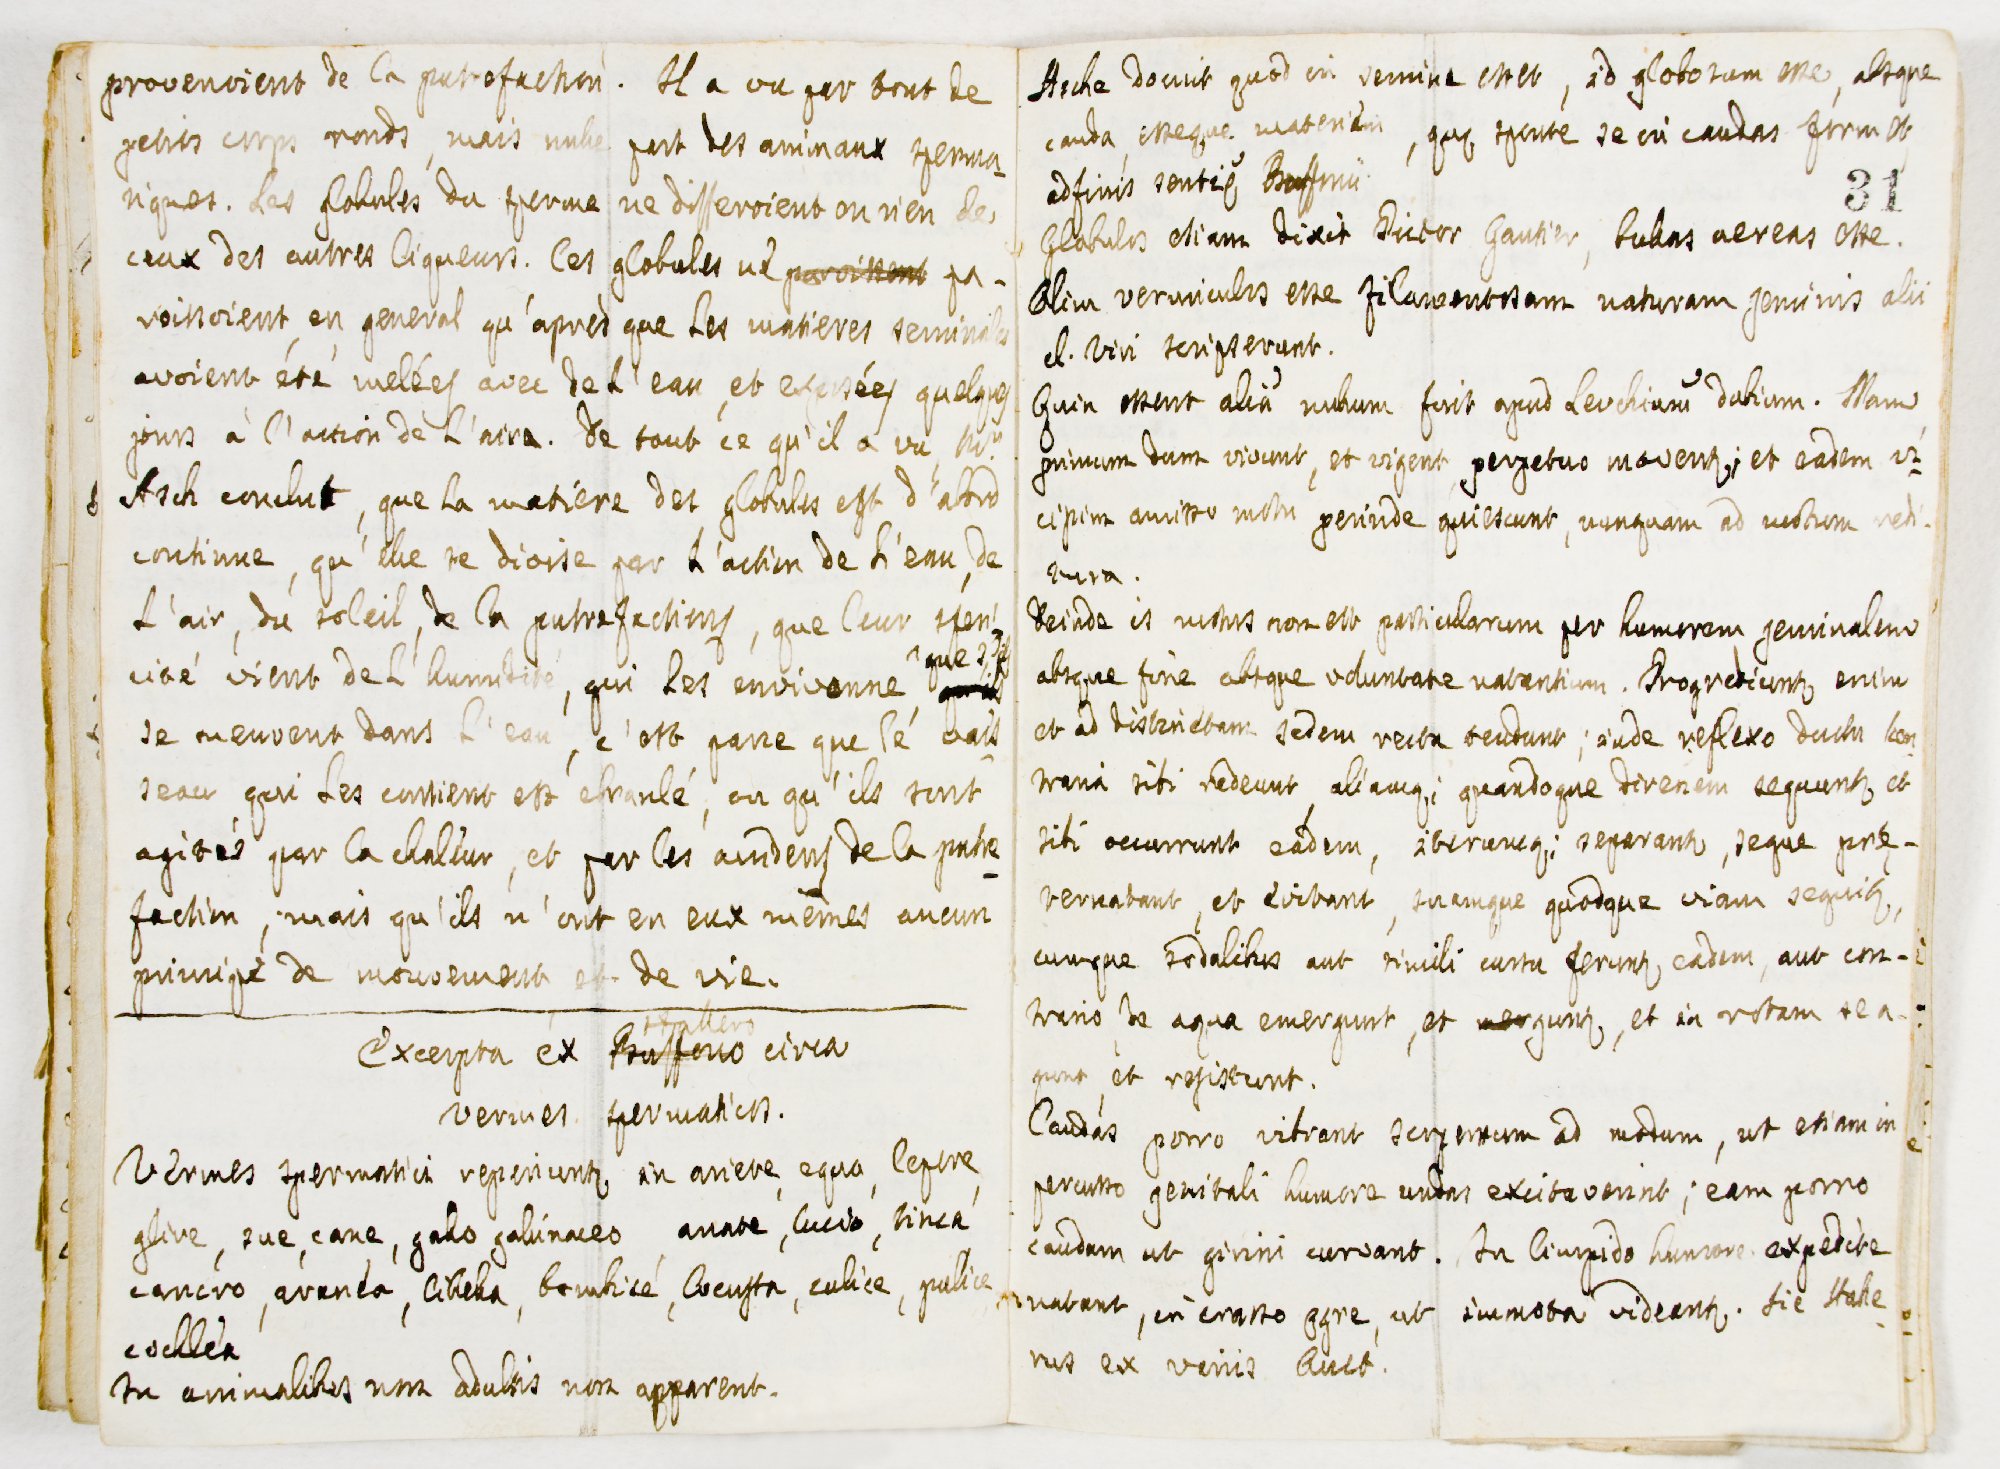 provenoient de la putrefaction. Il a vu par tout de
petits corps ronds, mais nulle part des animaux sperma-
tiques. Les globules du sperme ne differoient on rien de
ceux des autres liqueurs. Ces globules ne paroissent pa-
roissoient en general qu'après que les matieres seminales
avoient été melées avec de l'eau, et exposées quelques
jours à l'action de l'aira. De tout ce qu'il a vu, Mr.
Asch conclut, que la matiere des globules est d'abord
continue, qu'elle se divise par l'action de l'eau, de
l'air, du soleil, de la putrefactions, que leur spheri-
cité vient de l'humidité, qui les environne, que s'ils
se meuvent dans l'eau, c'est parce que lé vais
seau qui les contient est ebranlé, ou qu'ils sont
agités par la chaleur, et par les accidens de la putre
faction, mais qu'ils n'ont en eux mêmes aucun
principe de mouvement et de vie.
Excerpta ex Buffono Hallero circa
vermes spermaticos.
Vermes spermatici reperiuntur in ariete, equo, lepore,
glire, sue, cane, gallo gallinaceo anate, lucio, tinca
cancro, aranea, libella, bombice, locusta, culice, pulice,
cochlea
In animalibus non adultis non apparent.
Asche docuit quod in semine esset, id globosum esse, absque
cauda, esseque materiam, quę sponte se in caudas formet
adfinis sentię Buffonii
31
Globulos etiam dixit Pictor Gautier, bullas aereas esse.
Olim vermiculos esse filamentosam naturam seminis alii
cl. viri scripserunt.
Quin essent alia nullum fuit apud Levckium dubium. Nam
primum dum vivunt, et vigent perpetuo moventur; et eadem vi-
cissim amisso motu perinde quiescunt, nunquam ad motum redi-
tura.
Deinde is motus non est particularum per humorem seminalem
absque fine absque voluntate natantium. Progrediuntur enim
et ad distinctam sedem recta tendunt; inde reflexo ductu con
traria sibi redeunt, aliamq; quandoque direnem sequuntur et
sibi occurrunt eadem, iterumq; separantur, seque prę-
ternatant, et evitant, suamque quodque viam sequitur,
cumque sodalibus aut simili cursu feruntur eadem, aut con-
trario, de aqua emergunt, et merguntur, et in rotam se a-
gunt, et resistunt.
Caudas porro vibrant serpentum ad modum, ut etiam in
percusso genitali humore undas excitaverint; eam porro
caudam ut girini curvant. In limpido humore expedite
natant, in crasso ęgre, ut immota videantur. Sic Halle
rus ex variis Auct.